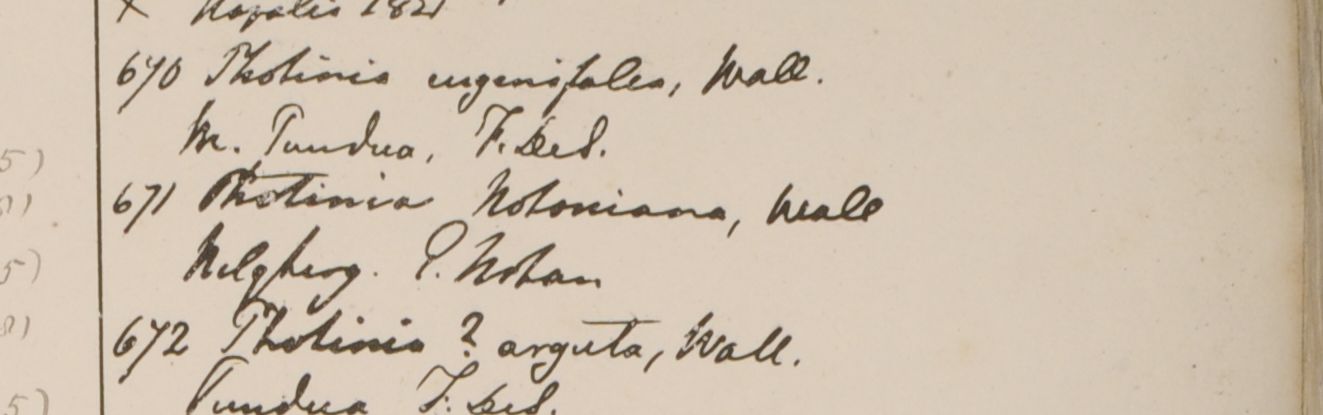 x Napalia 1821
670 Photinia eugenifolia, Wall.
M. Pundua, F. DeS.
671 Photinia Notoniana, Wall
Nelgherg. P. Noton
672 Photinia ? arguta, Wall.
Pundua F. DeS.
5)
81)
5)
81)
5)